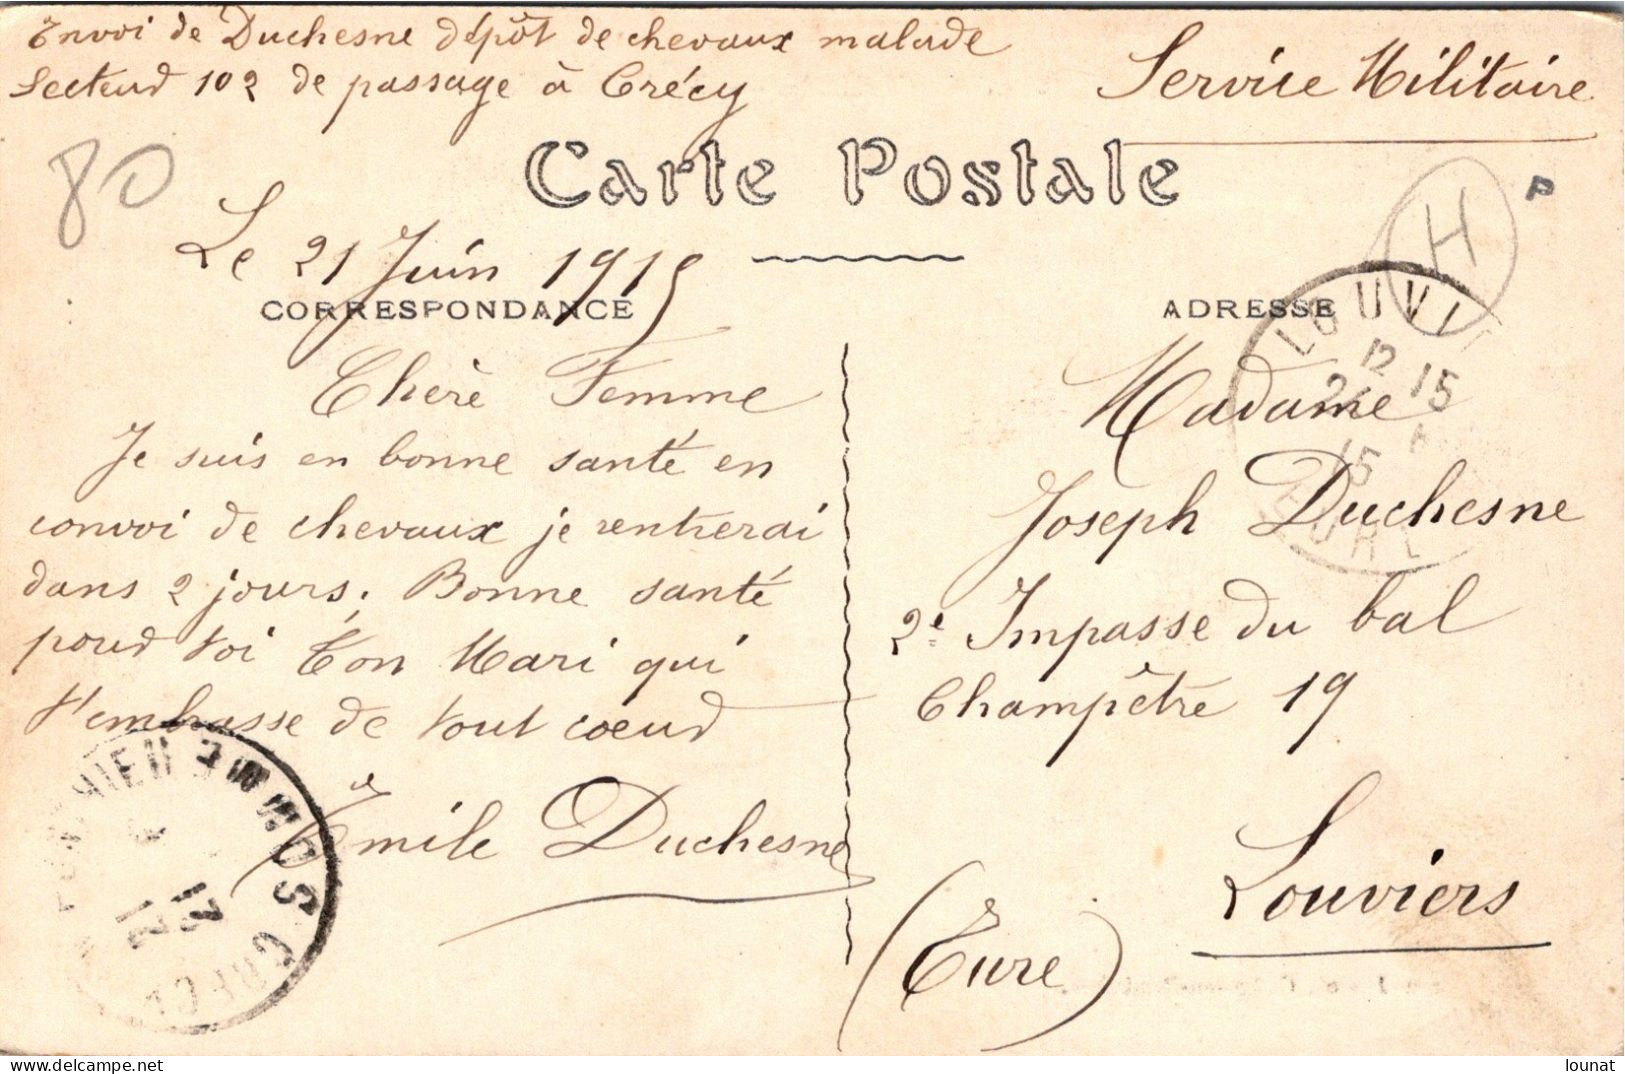 Envoi de Duchesne dépôt de chevaux malade
Secteur 102 de passage à Crécy
Service Militaire
80
Carte Postale
H
P
Le 21 Juin 1915
CORRESPONDANCE
ADRESSE
LOUVI
12 15
15
EURE
Chère Femme
Je suis en bonne santé en
convoi de chevaux je rentrerai
dans 2 jours. Bonne santé
pour toi Ton Mari qui
t'embrasse de tout coeur
Émile Duchesne
Madame
Joseph Duchesne
2e Impasse du bal
Champêtre 19
Louviers
(Eure)
lounat